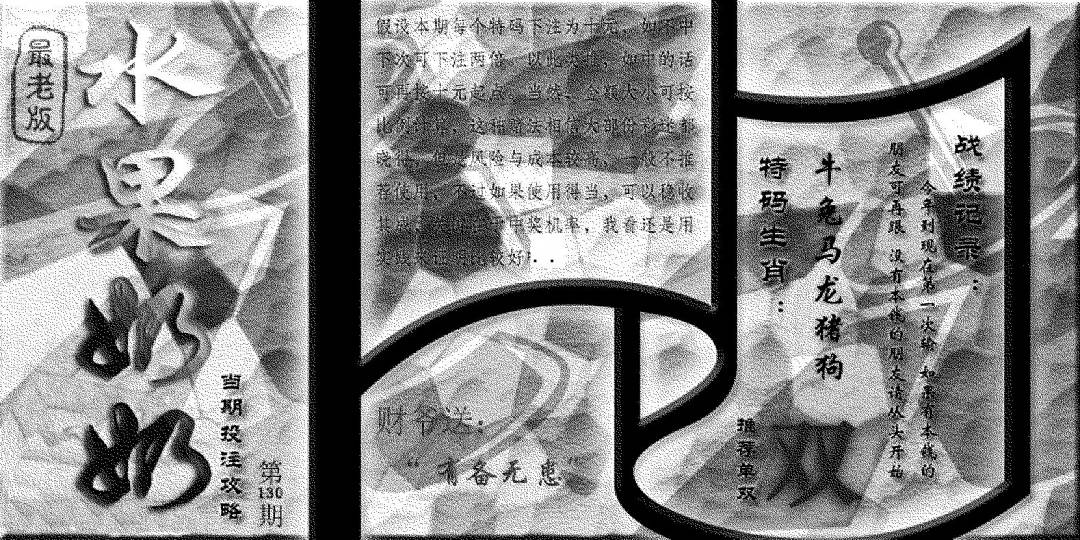 最老版
水果奶奶
当期投注攻略
第130期
假设本期每个特码下注为十元，如不中
下次可下注两倍，以此类推，如中的话
可再按十元起点，当然，金额大小可按
比例计算，这种赌法相信大部份彩迷都
晓得，但是风险与成本较高，一般不推
荐使用，不过如果使用得当，可以稳收
其成，
中奖机率，我看还是用
比较好！..
财爷送：
“有备无患”
战绩记录：
今年到现在第一次输 如果有本钱的
朋友可再跟 没有本钱的朋友请从大开始
牛兔马龙猪狗
特码生肖：
推荐单双
双